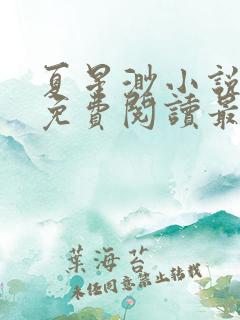 夏星渺小說
免費閱讀最
葉海苔
未經同意禁止轉載